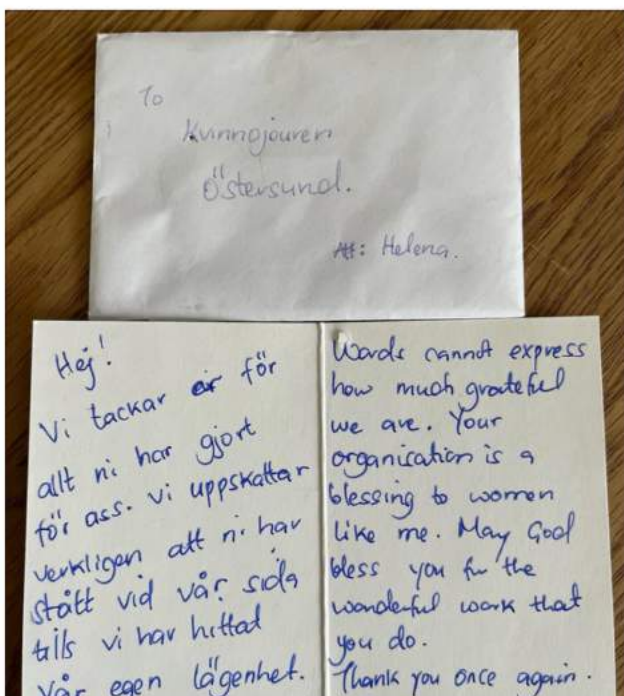 To
Kvinnojouren
Östersund.
Att: Helena.
Hej!
Vi tackar er för
allt ni har gjort
för oss. Vi uppskattar
verkligen att ni har
stått vid vår sida
tills vi har hittat
vår egen lägenhet.
Words cannot express
how much grateful
we are. Your
organisation is a
blessing to women
like me. May God
bless you for the
wonderful work that
you do.
Thank you once again.